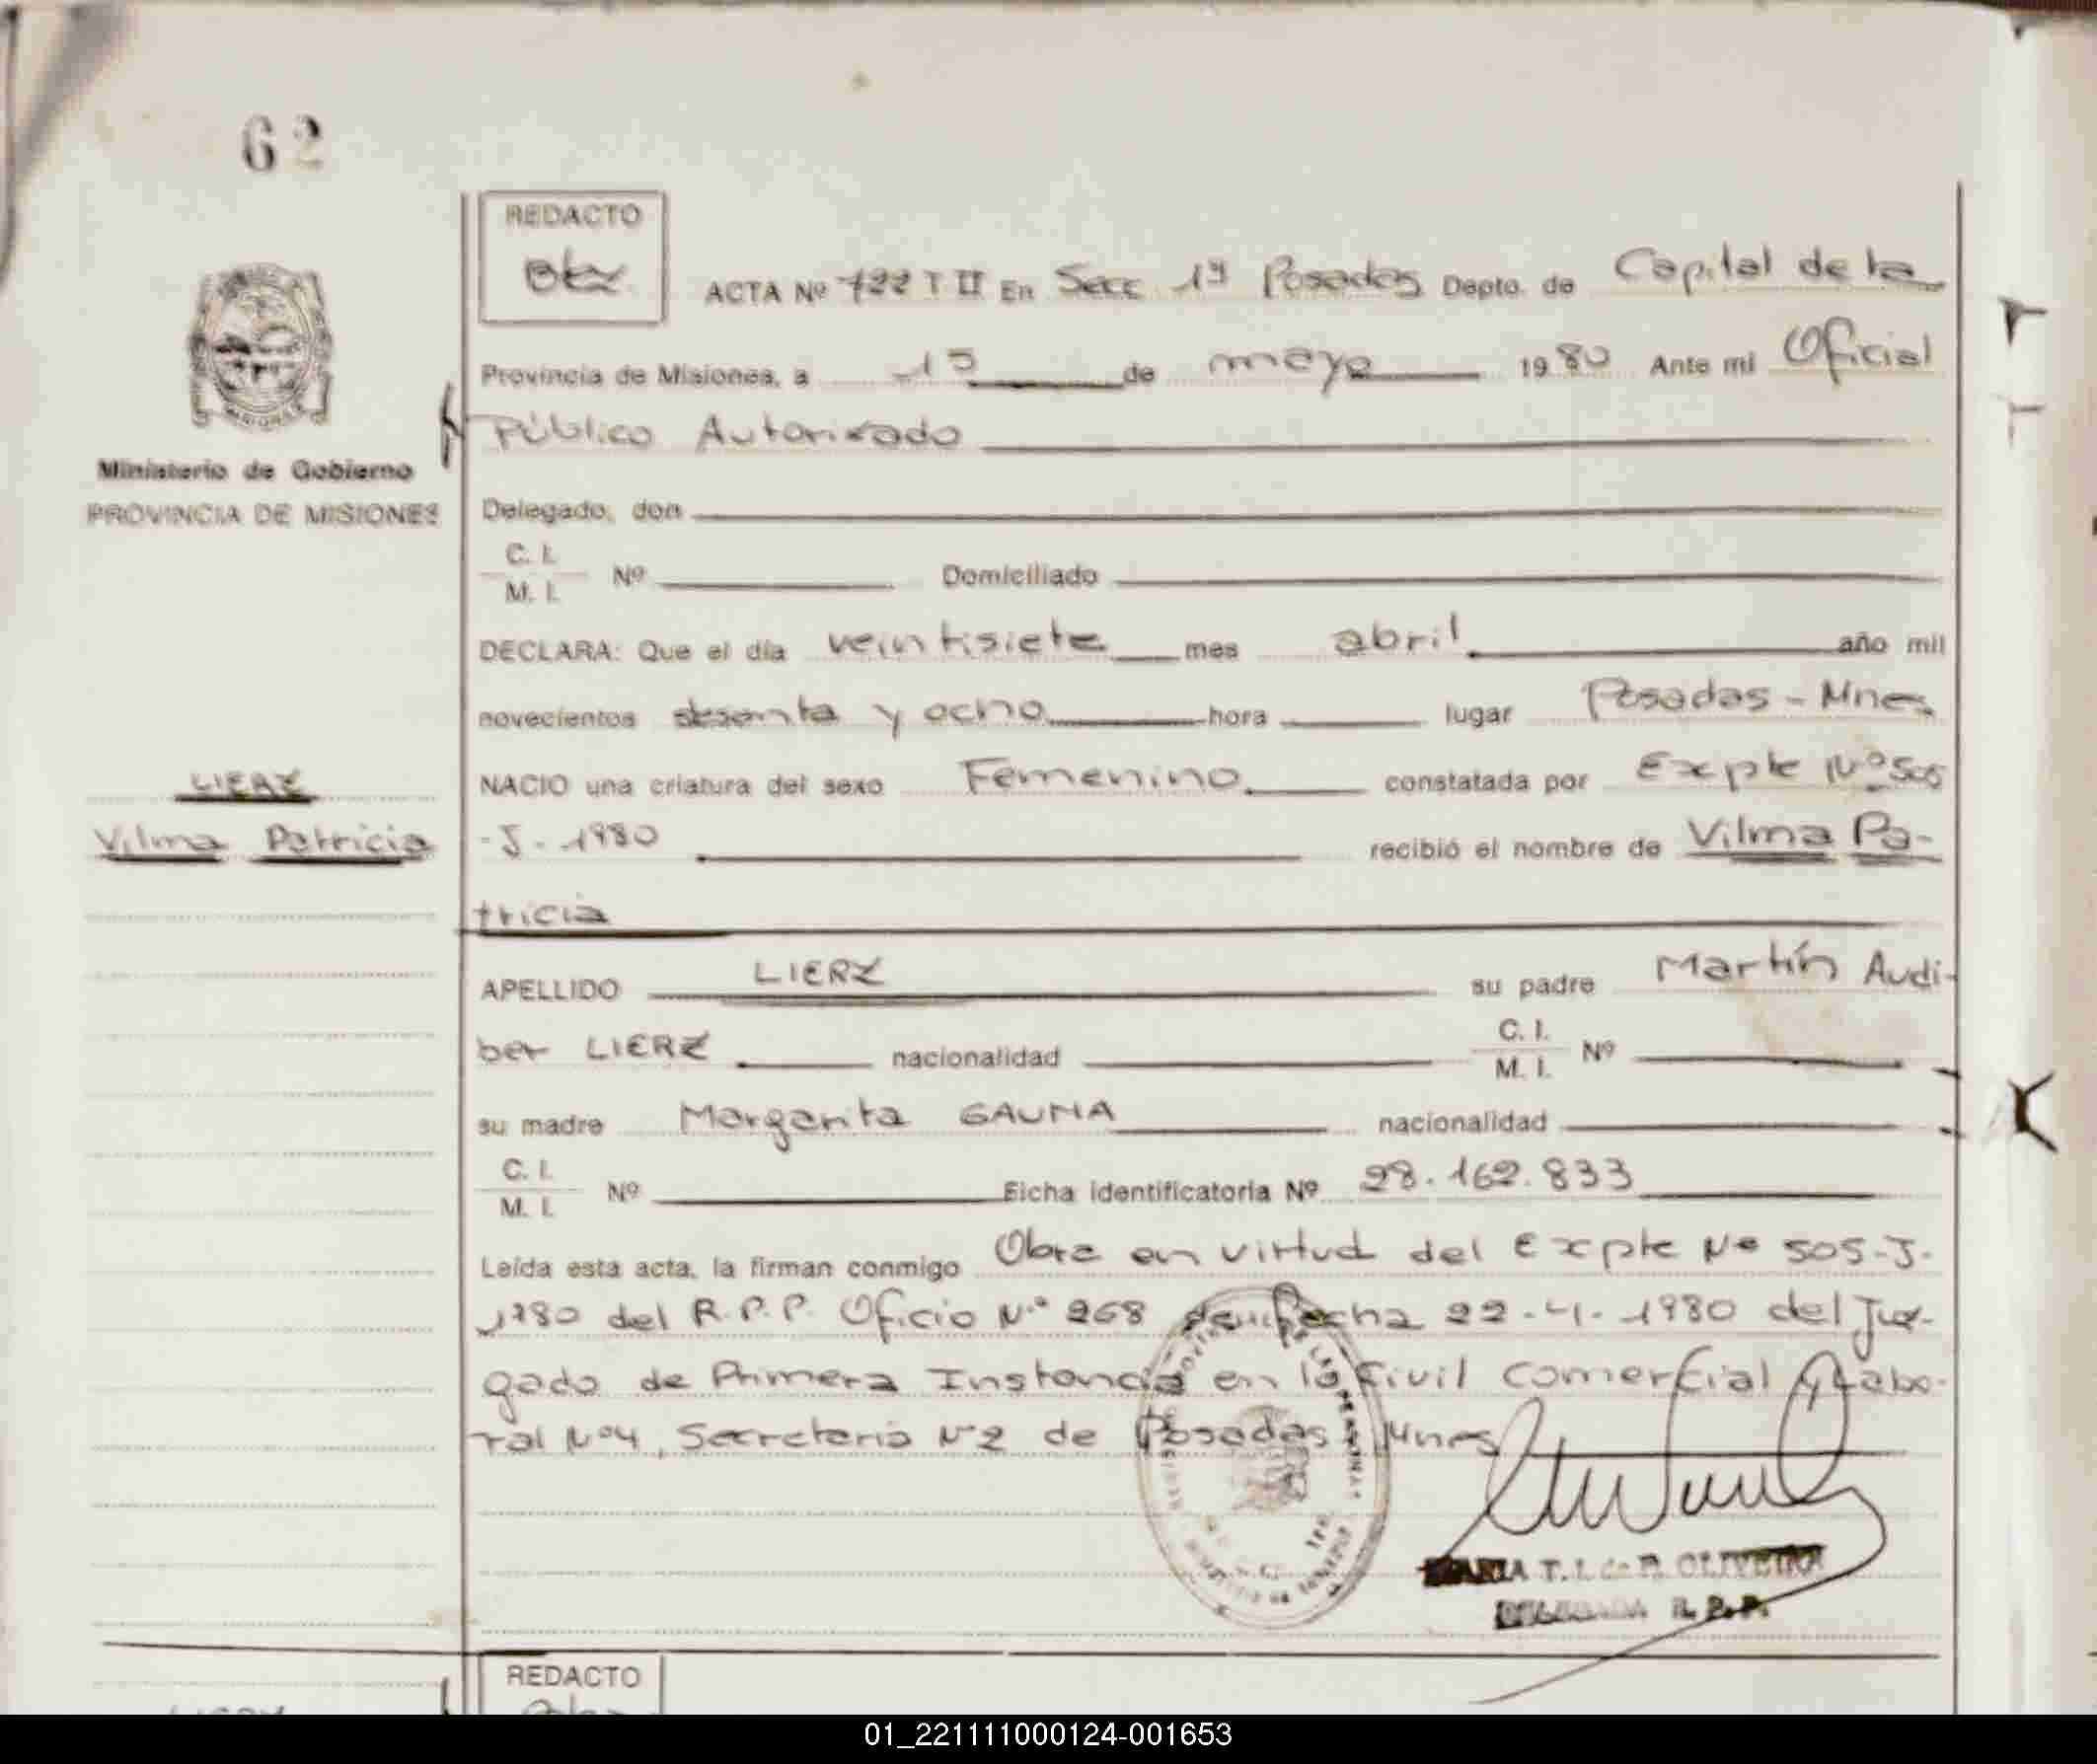 62
REDACTO
ACTA Nº 722 T II En Secc 1ª Posadas Depto. de Capital de la
Provincia de Misiones, a 15 de mayo 1980 Ante mi Oficial
Público Autorizado
Ministerio de Gobierno
PROVINCIA DE MISIONES
Delegado, don
C. I.
M. I. Nº Domiciliado
DECLARA: Que el día veintisiete mes abril año mil
novecientos sesenta y ocho hora lugar Posadas - Mnes
LIERZ
NACIO una criatura del sexo Femenino. constatada por Expte Nº 505
Vilma Patricia
-J-1980 recibió el nombre de Vilma Pa-
tricia
APELLIDO LIERZ su padre Martín Audi-
ber LIERZ nacionalidad C. I. M. I. Nº
su madre Margarita GAUNA nacionalidad
C. I.
M. I. Nº Ficha identificatoria Nº 28.162.833
Leída esta acta, la firman conmigo Obra en virtud del Expte Nº 505-J-
1980 del R.P.P. Oficio Nº 268 de fecha 22-4-1980 del Juz-
gado de Primera Instancia en lo Civil Comercial y Labo-
ral Nº4, Secretaria Nº2 de Posadas Mnes
MARIA T. I. de P. OLIVEIRA
DELEGADA R. P. P.
REDACTO
LIERZ
01_221111000124-001653